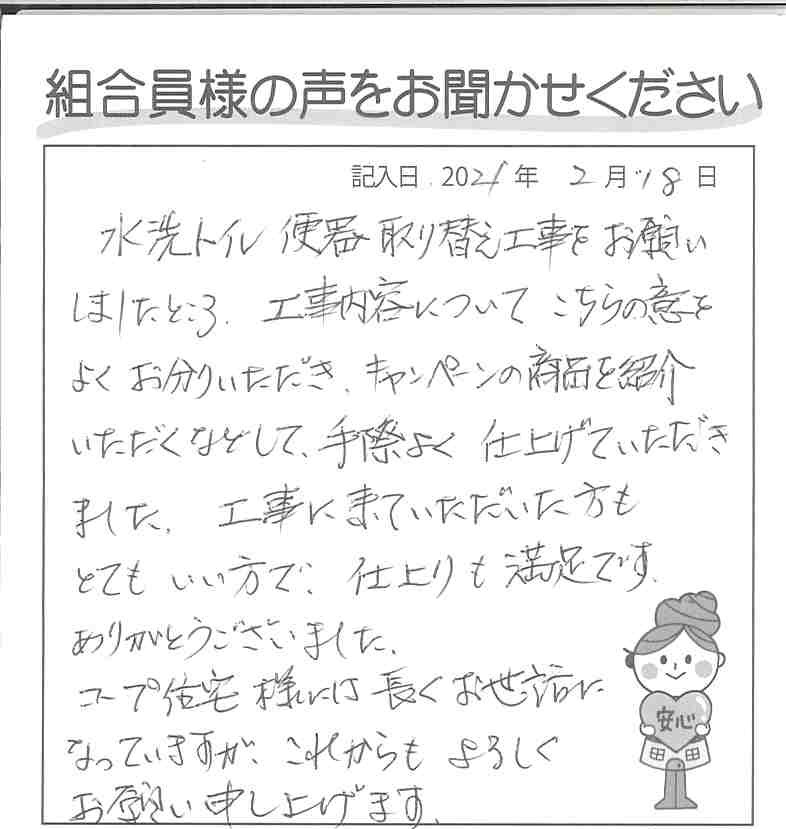 組合員様の声をお聞かせください
記入日 2021年 2月 18日
水洗トイレ 便器 取り替え工事をお願い
しましたところ、工事内容について こちらの意を
よく お分りいただき、キャンペーンの商品を紹介
いただくなどして、手際よく 仕上げていただき
ました。 工事に来ていただいた方も
とても いい方で、仕上りも 満足です。
ありがとうございました。
コープ住宅 様には 長く お世話に
なっていますが、これからも よろしく
お願い 申し上げます。
安心